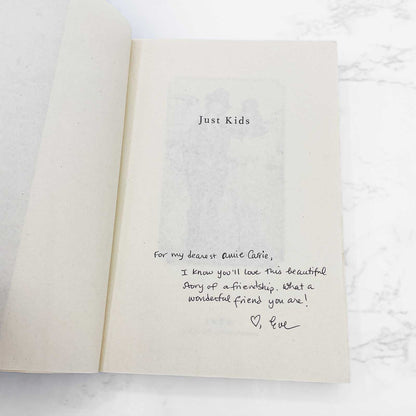 Just Kids
For my dearest amie Carie,
I know you'll love this beautiful
story of a friendship. What a
wonderful friend you are!
♡, Eve